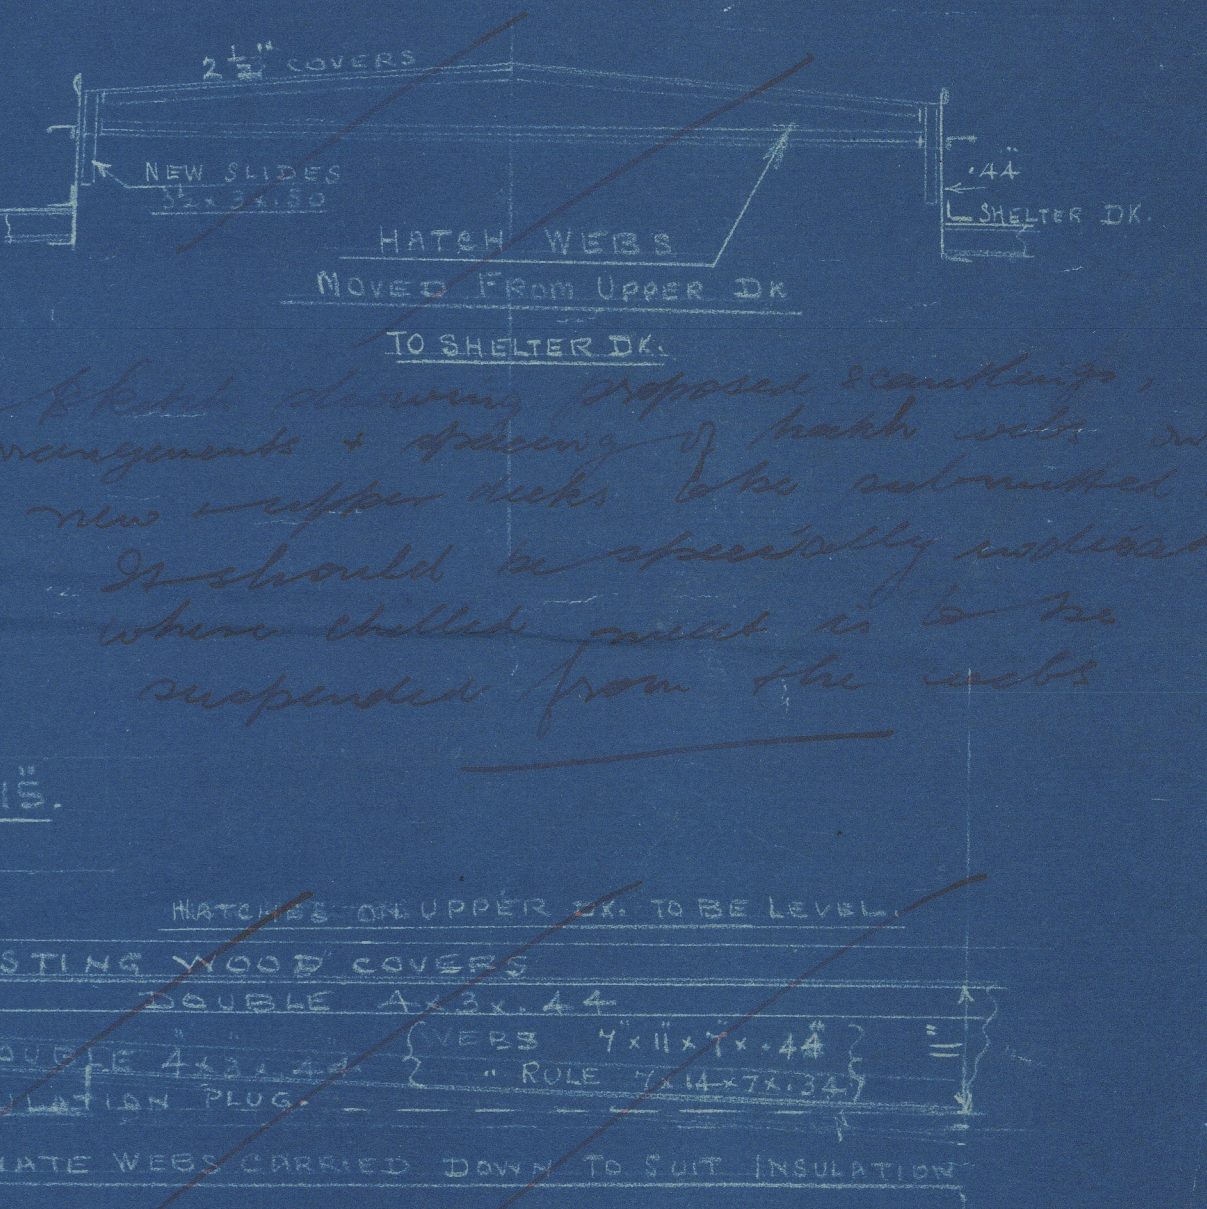 2½" COVERS
NEW SLIDES
3½ x 3 x .50
.44"
SHELTER DK.
HATCH WEBS
MOVED FROM UPPER DK
TO SHELTER DK.
Sketch showing proposed scantlings,
rrangements & spacing of hatch webs on
new upper decks to be submitted
It should be specially indicat
where chilled meat is to be
suspended from the webs
15".
HATCHES ON UPPER DK. TO BE LEVEL.
STING WOOD COVERS
DOUBLE 4 x 3 x .44
OUBLE 4" x 3 x .44
WEBS 7" x 11" x 7" x .44"
" RULE 7 x 14 x 7 x .34
ULATION PLUG.
NATE WEBS CARRIED DOWN TO SUIT INSULATION